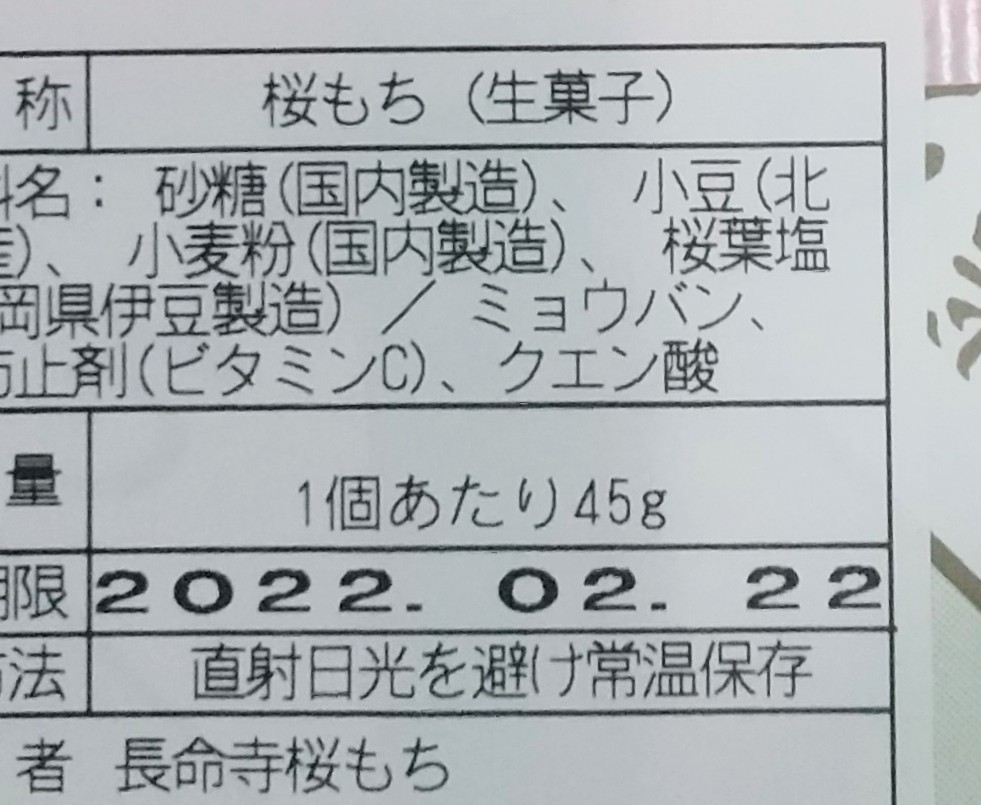 称 桜もち（生菓子）
名： 砂糖(国内製造)、 小豆(北
)、 小麦粉(国内製造)、 桜葉塩
岡県伊豆製造) ／ ミョウバン、
止剤(ビタミンC)、クエン酸
量 1個あたり45g
限 2022. 02. 22
法 直射日光を避け常温保存
者 長命寺桜もち